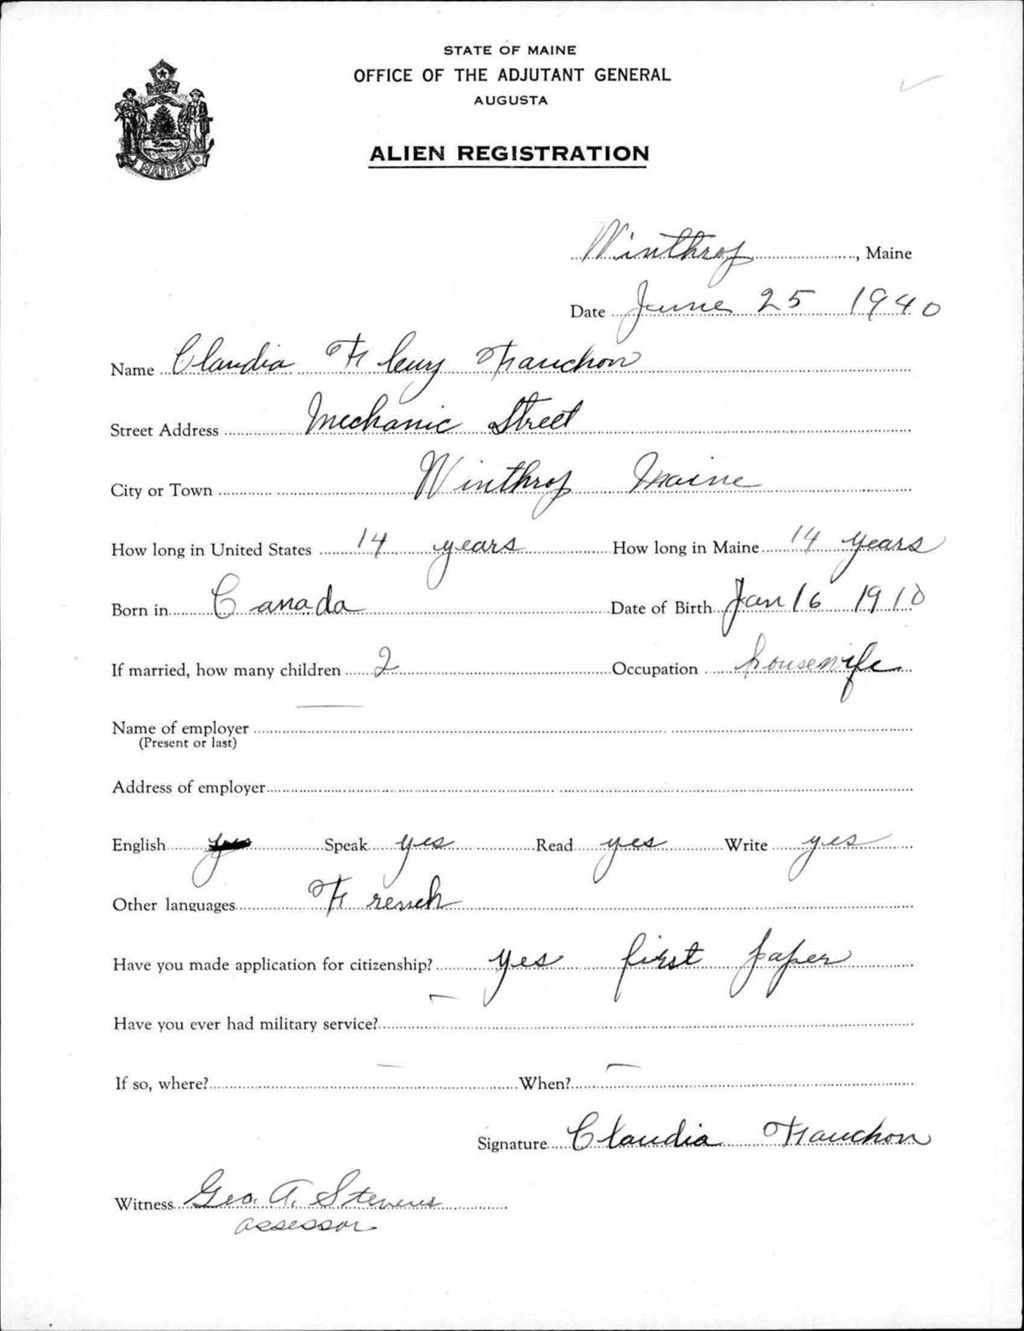 STATE OF MAINE
OFFICE OF THE ADJUTANT GENERAL
AUGUSTA
ALIEN REGISTRATION
MAINE
Winthrop, Maine
Date June 25 1940
Name Claudia Fleury Frauchon
Street Address Mechanic Street
City or Town Winthrop Maine
How long in United States 14 years How long in Maine 14 years
Born in Canada Date of Birth Jan 16 1910
If married, how many children 2 Occupation housewife
Name of employer
(Present or last)
Address of employer
English yes Speak yes Read yes Write yes
Other languages French
Have you made application for citizenship? yes first paper
Have you ever had military service? —
If so, where? — When? —
Signature Claudia Frauchon
Witness Geo. A. Stevens
assessor